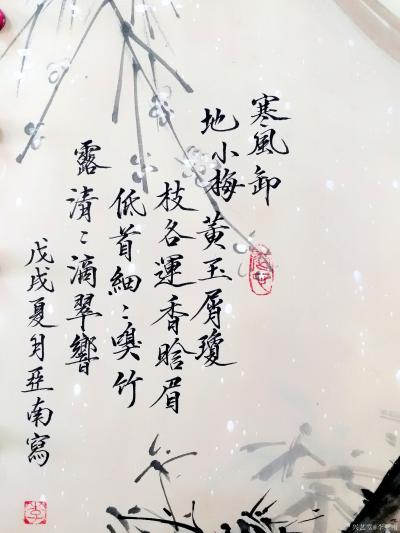 寒風卸
地小梅黃玉屑瓊
枝各運香晗眉
低首細〻嗅竹
露清〻滴翠響
戊戌夏月亞南寫
李